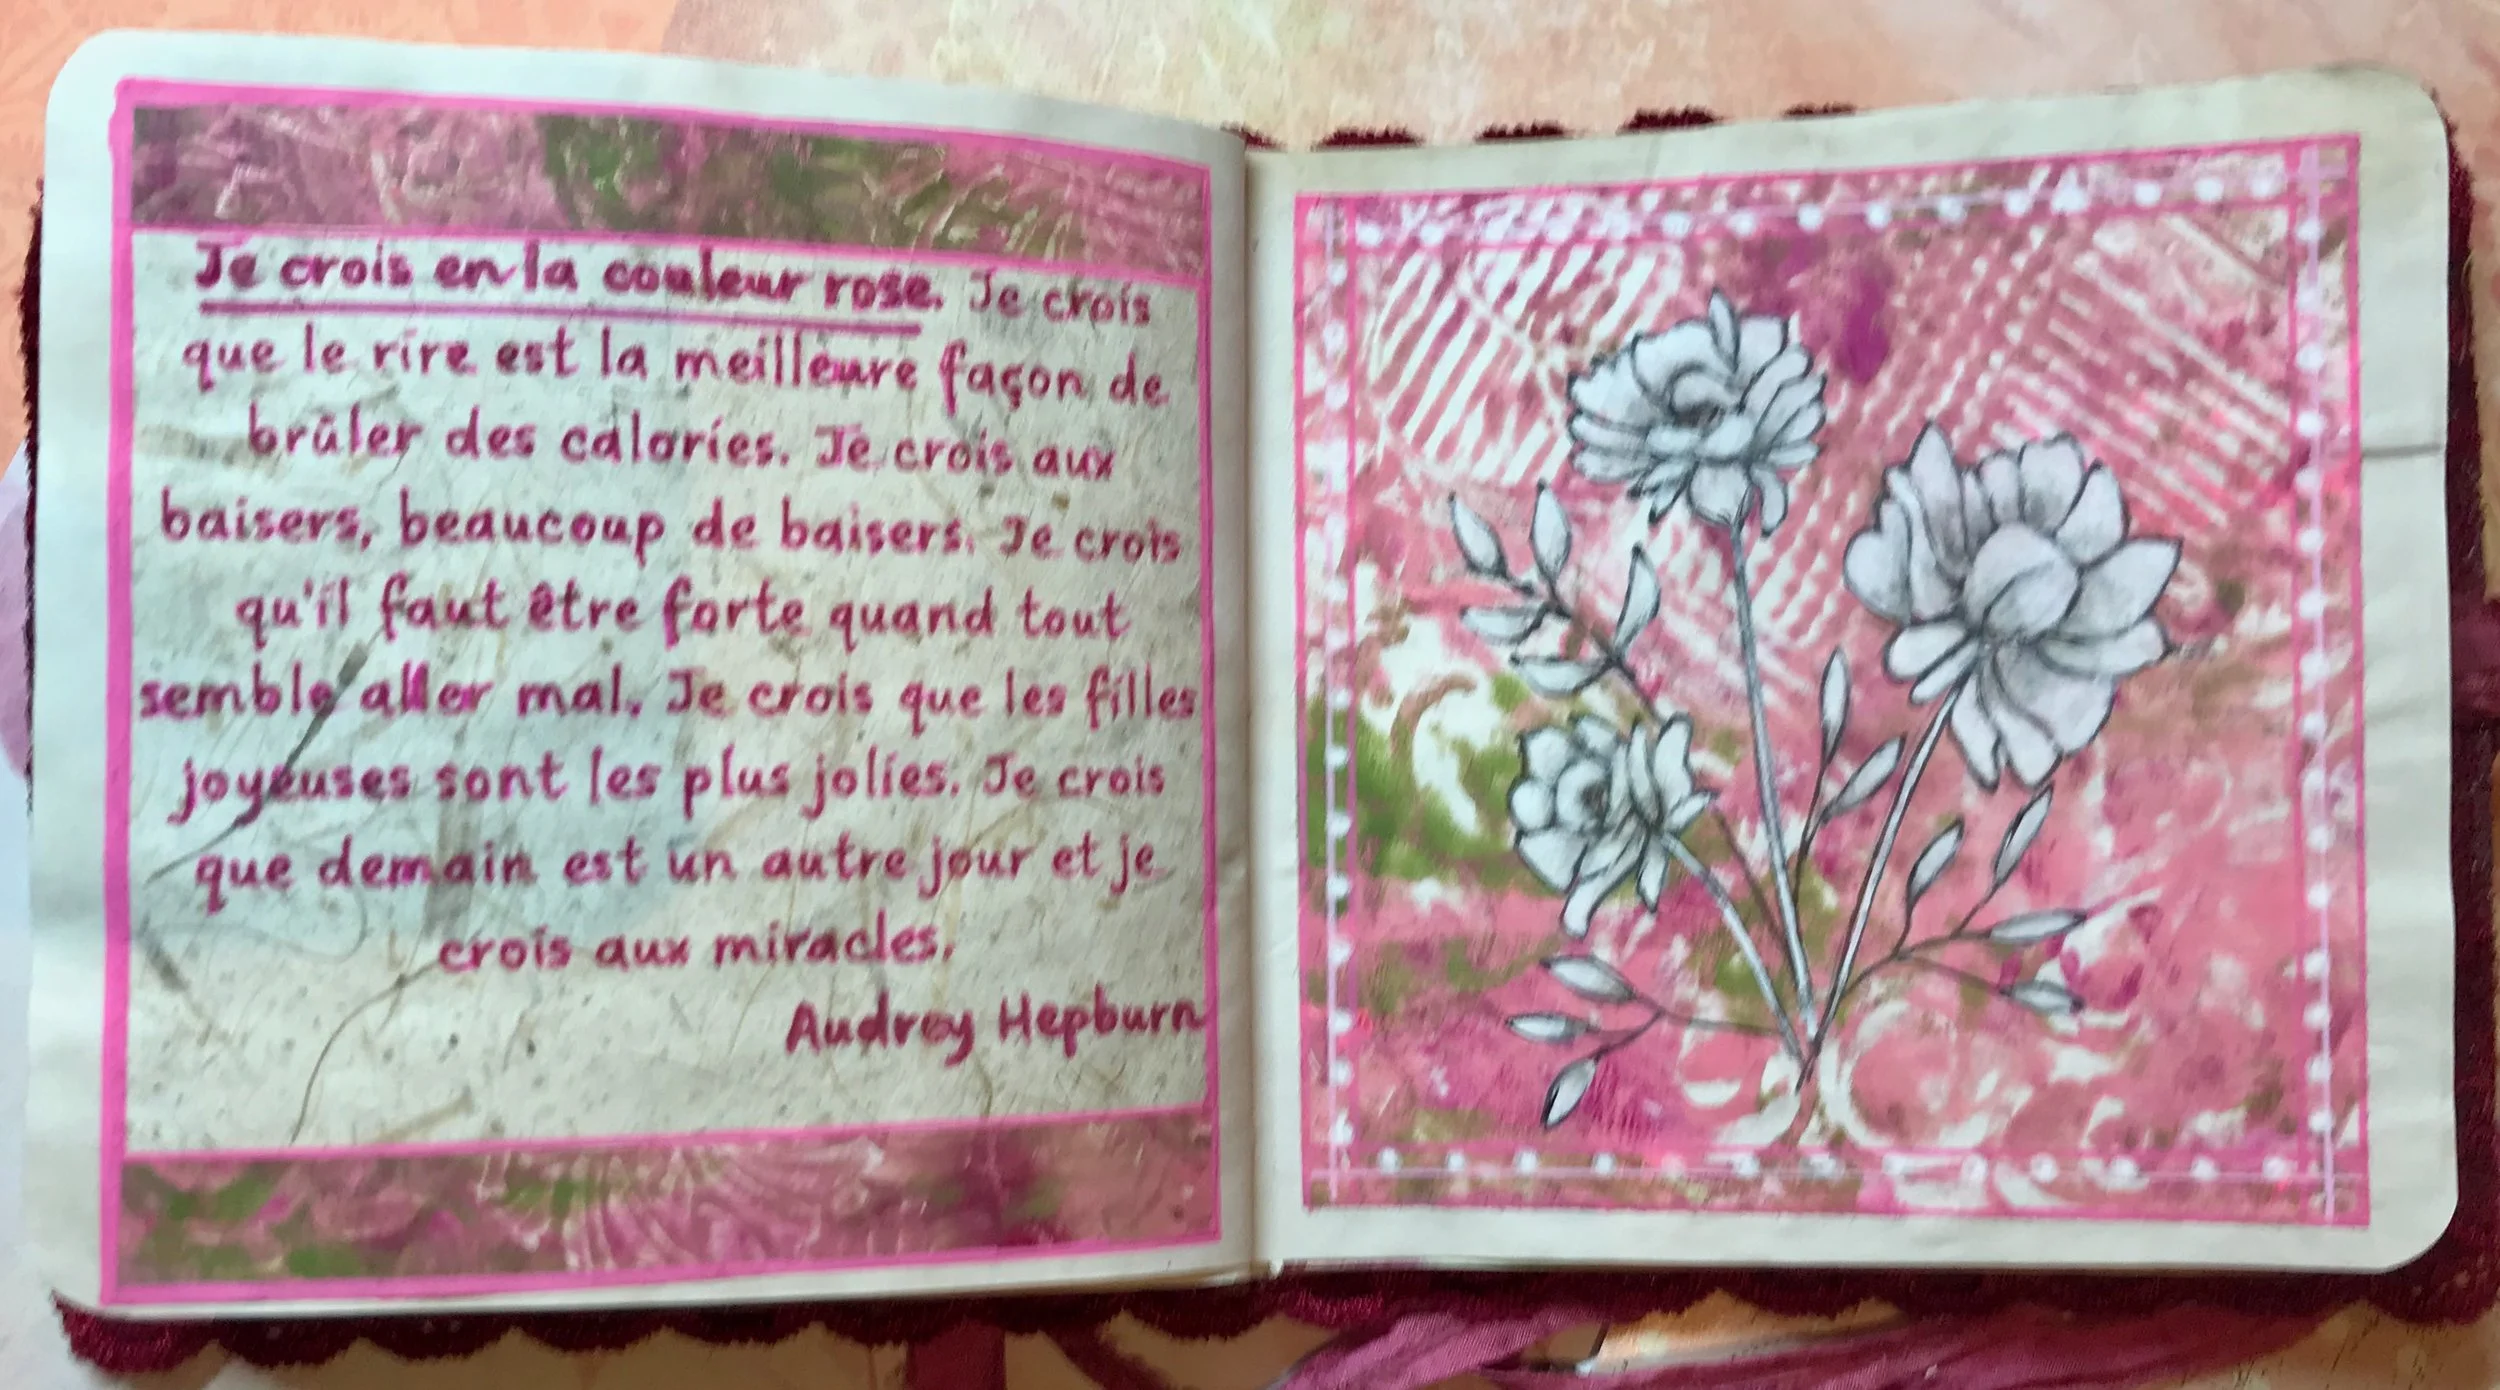 Je crois en la couleur rose. Je crois
que le rire est la meilleure façon de
brûler des calories. Je crois aux
baisers, beaucoup de baisers. Je crois
qu'il faut être forte quand tout
semble aller mal. Je crois que les filles
joyeuses sont les plus jolies. Je crois
que demain est un autre jour et je
crois aux miracles.
Audrey Hepburn